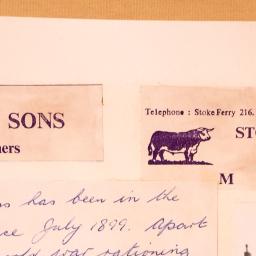 SONS
ners
Telephone : Stoke Ferry 216.
ST
M
ss has been in the
ce July 1899. Apart
world war rationing